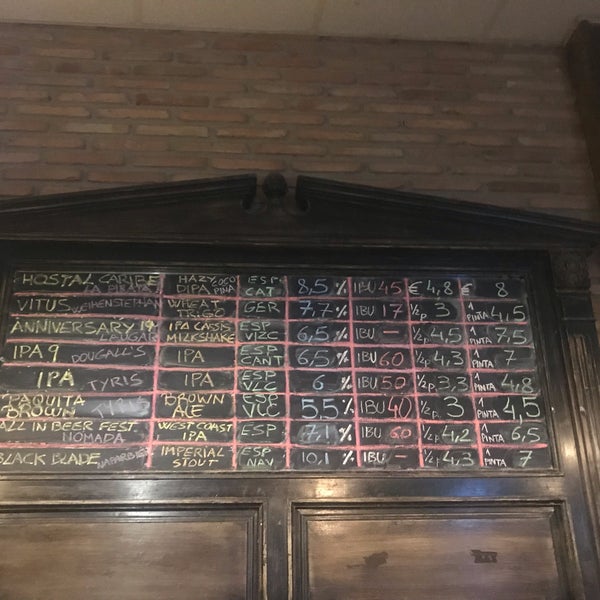 HOSTAL CARIBE LA PIRATA HAZY DIPA COCO PIÑA ESP CAT 8,5 % IBU 45 € 4,8 € 8
VITUS WEIHENSTEPHAN WHEAT TRIGO GER 7,7 % IBU 17 1/2 p. 3 1 PINTA 4,5
ANNIVERSARY 14 LAUGAR IPA CASSIS MILKSHAKE ESP VIZC 6,5 % IBU — 1/2 p. 4,5 1 PINTA 7,5
IPA 9 DOUGALL'S IPA ESP CANT 6,5 % IBU 60 1/2 p. 4,3 1 PINTA 7
IPA TYRIS IPA ESP VLC 6 % IBU 50 1/2 p. 3,3 1 PINTA 4,8
PAQUITA BROWN TYRIS BROWN ALE ESP VLC 5,5 % IBU 40 1/2 p. 3 1 PINTA 4,5
ALL IN BEER FEST NOMADA WEST COAST IPA ESP 7,1 % IBU 60 1/2 p. 4,2 1 PINTA 6,5
BLACK BLADE NAPARBIER IMPERIAL STOUT ESP NAV 10,1 % IBU — 1/2 p. 4,3 1 PINTA 7